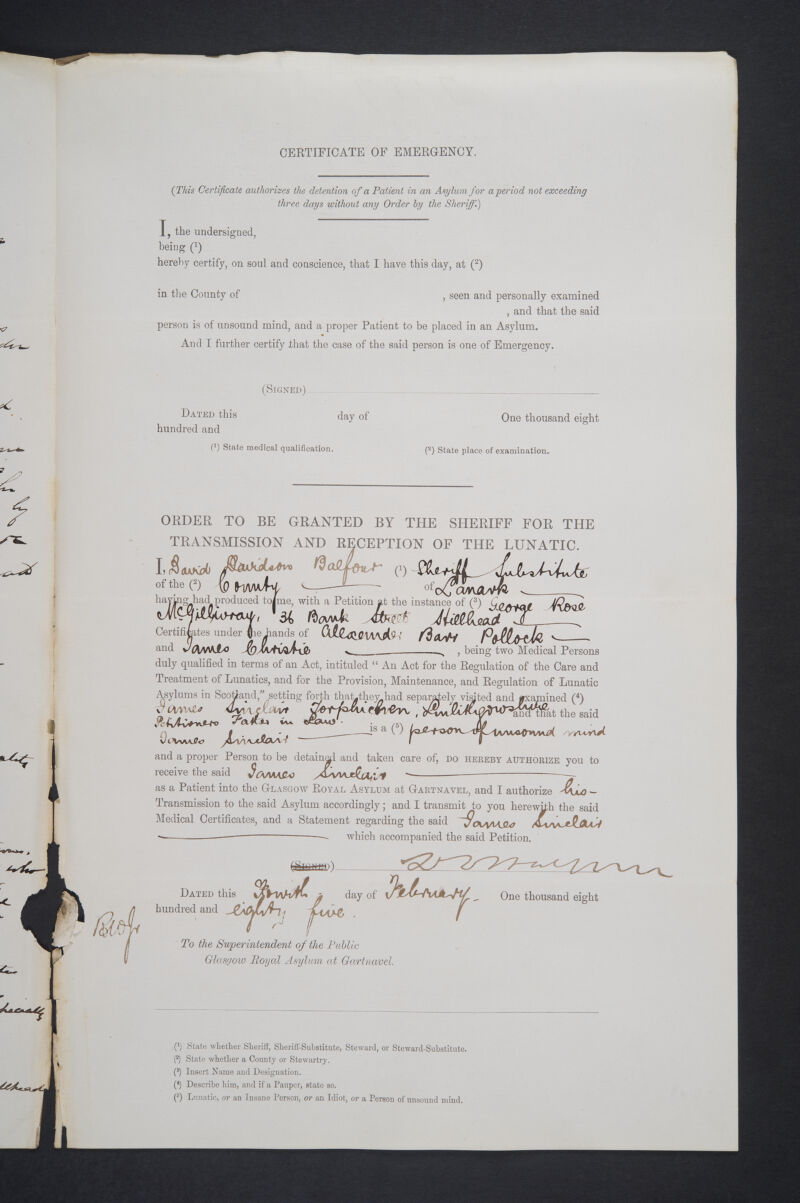 CERTIFICATE OF EMERGENCY.
(This Certificate authorizes the detention of a Patient in an Asylum for a period not exceeding
three days without any Order by the Sheriff.)
I, the undersigned,
being (1)
hereby certify, on soul and conscience, that I have this day, at (2)
in the County of , seen and personally examined
, and that the said
person is of unsound mind, and a proper Patient to be placed in an Asylum.
And I further certify that the case of the said person is one of Emergency.
(SIGNED)
DATED this day of One thousand eight
hundred and
(1) State medical qualification. (2) State place of examination.
ORDER TO BE GRANTED BY THE SHERIFF FOR THE
TRANSMISSION AND RECEPTION OF THE LUNATIC.
I, David Davidson Balfour (1) Sheriff Substitute
of the (2) County of Lanark
having had produced to me, with a Petition at the instance of (3) George Rose
McGillivray, 36 Bank Street Hillhead
Certificates under the hands of Alexander Barr Pollock
and James Christie , being two Medical Persons
duly qualified in terms of an Act, intituled “ An Act for the Regulation of the Care and
Treatment of Lunatics, and for the Provision, Maintenance, and Regulation of Lunatic
Asylums in Scotland,” setting forth that they had separately visited and examined (4)
James Sinclair Torphichen, Linlithgowshire
Petitioners Father in Law and that the said
James Sinclair is a (5) person of unsound mind
and a proper Person to be detained and taken care of, DO HEREBY AUTHORIZE you to
receive the said James Sinclair
as a Patient into the GLASGOW ROYAL ASYLUM at GARTNAVEL, and I authorize his
Transmission to the said Asylum accordingly; and I transmit to you herewith the said
Medical Certificates, and a Statement regarding the said James Sinclair
which accompanied the said Petition.
(SIGNED)
DATED this Fourth day of February One thousand eight
hundred and eighty five.
To the Superintendent of the Public
Glasgow Royal Asylum at Gartnavel.
(1) State whether Sheriff, Sheriff-Substitute, Steward, or Steward-Substitute.
(2) State whether a County or Stewartry.
(3) Insert Name and Designation.
(4) Describe him, and if a Pauper, state so.
(5) Lunatic, or an Insane Person, or an Idiot, or a Person of unsound mind.